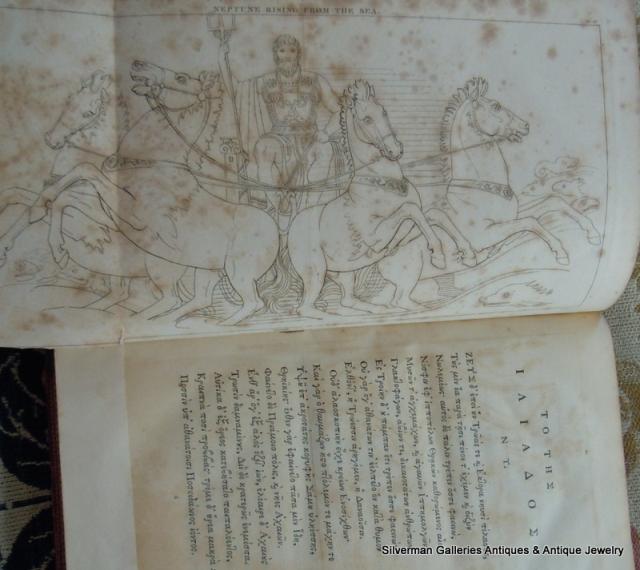 NEPTUNE RISING FROM THE SEA.
ΤΟ ΤΗΣ
ΙΛΙΑΔΟΣ
Ν τ.
ΖΕΥΣ δ' ἐπεὶ οὖν Τρῶάς τε ϗ Ἕκτορα νηυσὶ πέλασσε,
Τοὺς μὲν ἔα παρὰ τῇσι πόνον τ' ἐχέμεν ϗ ὀϊζὺν
Νωλεμέως· αὐτὸς δὲ πάλιν τρέπεν ὄσσε φαεινώ,
Νόσφιν ἐφ' ἱπποπόλων Θρῃκῶν καθορώμενος αἶαν
Μυσῶν τ' ἀγχεμάχων, ϗ ἀγαυῶν Ἱππημολγῶν,
Γλακτοφάγων, ἀβίων τε, δικαιοτάτων ἀνθρώπων.
Ἐς Τροίην δ' οὐ πάμπαν ἔτι τρέπεν ὄσσε φαεινώ·
Οὐ γὰρ ὅγ' ἀθανάτων τιν' ἐέλπετο ὃν κατὰ θυμὸν
Ἐλθόντ', ἢ Τρώεσσιν ἀρηγέμεν, ἢ Δαναοῖσιν.
Οὐδ' ἀλαοσκοπιὴν εἶχε κρείων Ἐνοσίχθων·
Καὶ γὰρ ὁ θαυμάζων ἧστο πτόλεμόν τε μάχην τε
Ὑψοῦ ἐπ' ἀκροτάτης κορυφῆς Σάμου ὑληέσσης,
Θρηϊκίης· ἔνθεν γὰρ ἐφαίνετο πᾶσα μὲν Ἴδη,
Φαίνετο δὲ Πριάμοιο πόλις, ϗ νῆες Ἀχαιῶν.
Ἔνθ' ἄρ' ὅγ' ἐξ ἁλὸς ἕζετ' ἰών, ἐλέαιρε δ' Ἀχαιοὺς
Τρωσὶν δαμναμένους, Διῒ δὲ κρατερῶς ἐνεμέσσα.
Αὐτίκα δ' ἐξ ὄρεος κατεβήσατο παιπαλόεντος,
Κραιπνὰ ποσὶ προβιβάς· τρέμε δ' οὔρεα μακρὰ
Ποσσὶν ὑπ' ἀθανάτοισι Ποσειδάωνος ἰόντος.
Silverman Galleries Antiques & Antique Jewelry